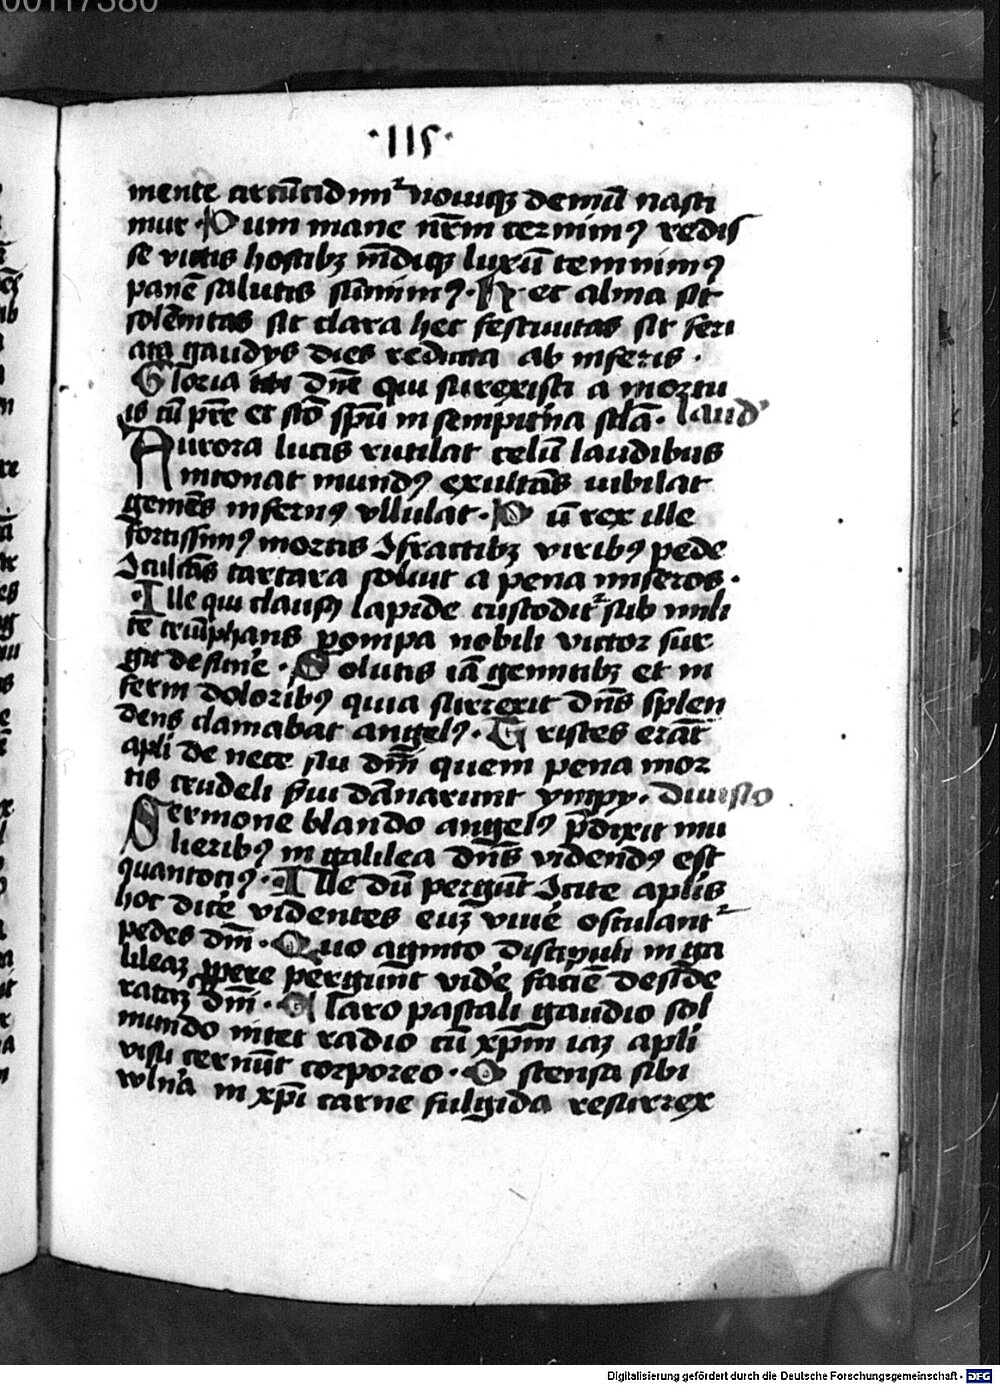 00117380
·115·
mente circūcidimr nouiqꝫ demū nasci
mur · Dum mane nr̄m cernimꝰ redis
se victis hostibꝫ mūdiqꝫ luxū temnimꝰ
panē salutis sūmimꝰ · Nox et alma sit
solēnitas sit clara hec festiuitas sit feri
ata gaudijs dies reducta ab inferis ·
Gloria tibi dn̄e qui surrexisti a mortu
is cū pr̄e et sc̄o sp̄u in sempit̄na scl̄a · laud
Aurora lucis rutilat celū laudibus
intonat mundꝰ exultās iubilat
gemēs infernꝰ vllulat · Cū rex ille
fortissimꝰ mortis ɔfractibꝫ viribꝰ pede
ɔculcās tartara soluit a pena miseros ·
· Ille qui clausꝰ lapide custoditr sub mili
te triūphans pompa nobili victor sur
git de fun̄e · Solutis iā gemitibꝫ et in
ferni doloribꝰ quia surrexit dn̄s splen
dens clamabat angelꝰ · Tristes erāt
apl̄i de nece sui dn̄i quem pena mor
tis crudeli s̄ui dānarunt ympij · diuisio
Sermone blando angelꝰ p̄dixit mu
lieribꝰ in galilea dn̄s videndꝰ est
quantociꝰ · Ille dū pergūt ɔcite apl̄is
hoc dic̄e videntes euꝫ viue osculantr
pedes dn̄i · Quo agnito discipuli in ga
lileaꝫ ꝓpere pergūnt vid̄e faciē deside
ratāꝫ dn̄i · Claro pascali gaudio sol
mundo nitet radio cū xp̄m iaꝫ apl̄i
visu cernūt corporeo · Ostensa sibi
vln̄a in xp̄i carne fulgida resurrex
Digitalisierung gefördert durch die Deutsche Forschungsgemeinschaft - DFG